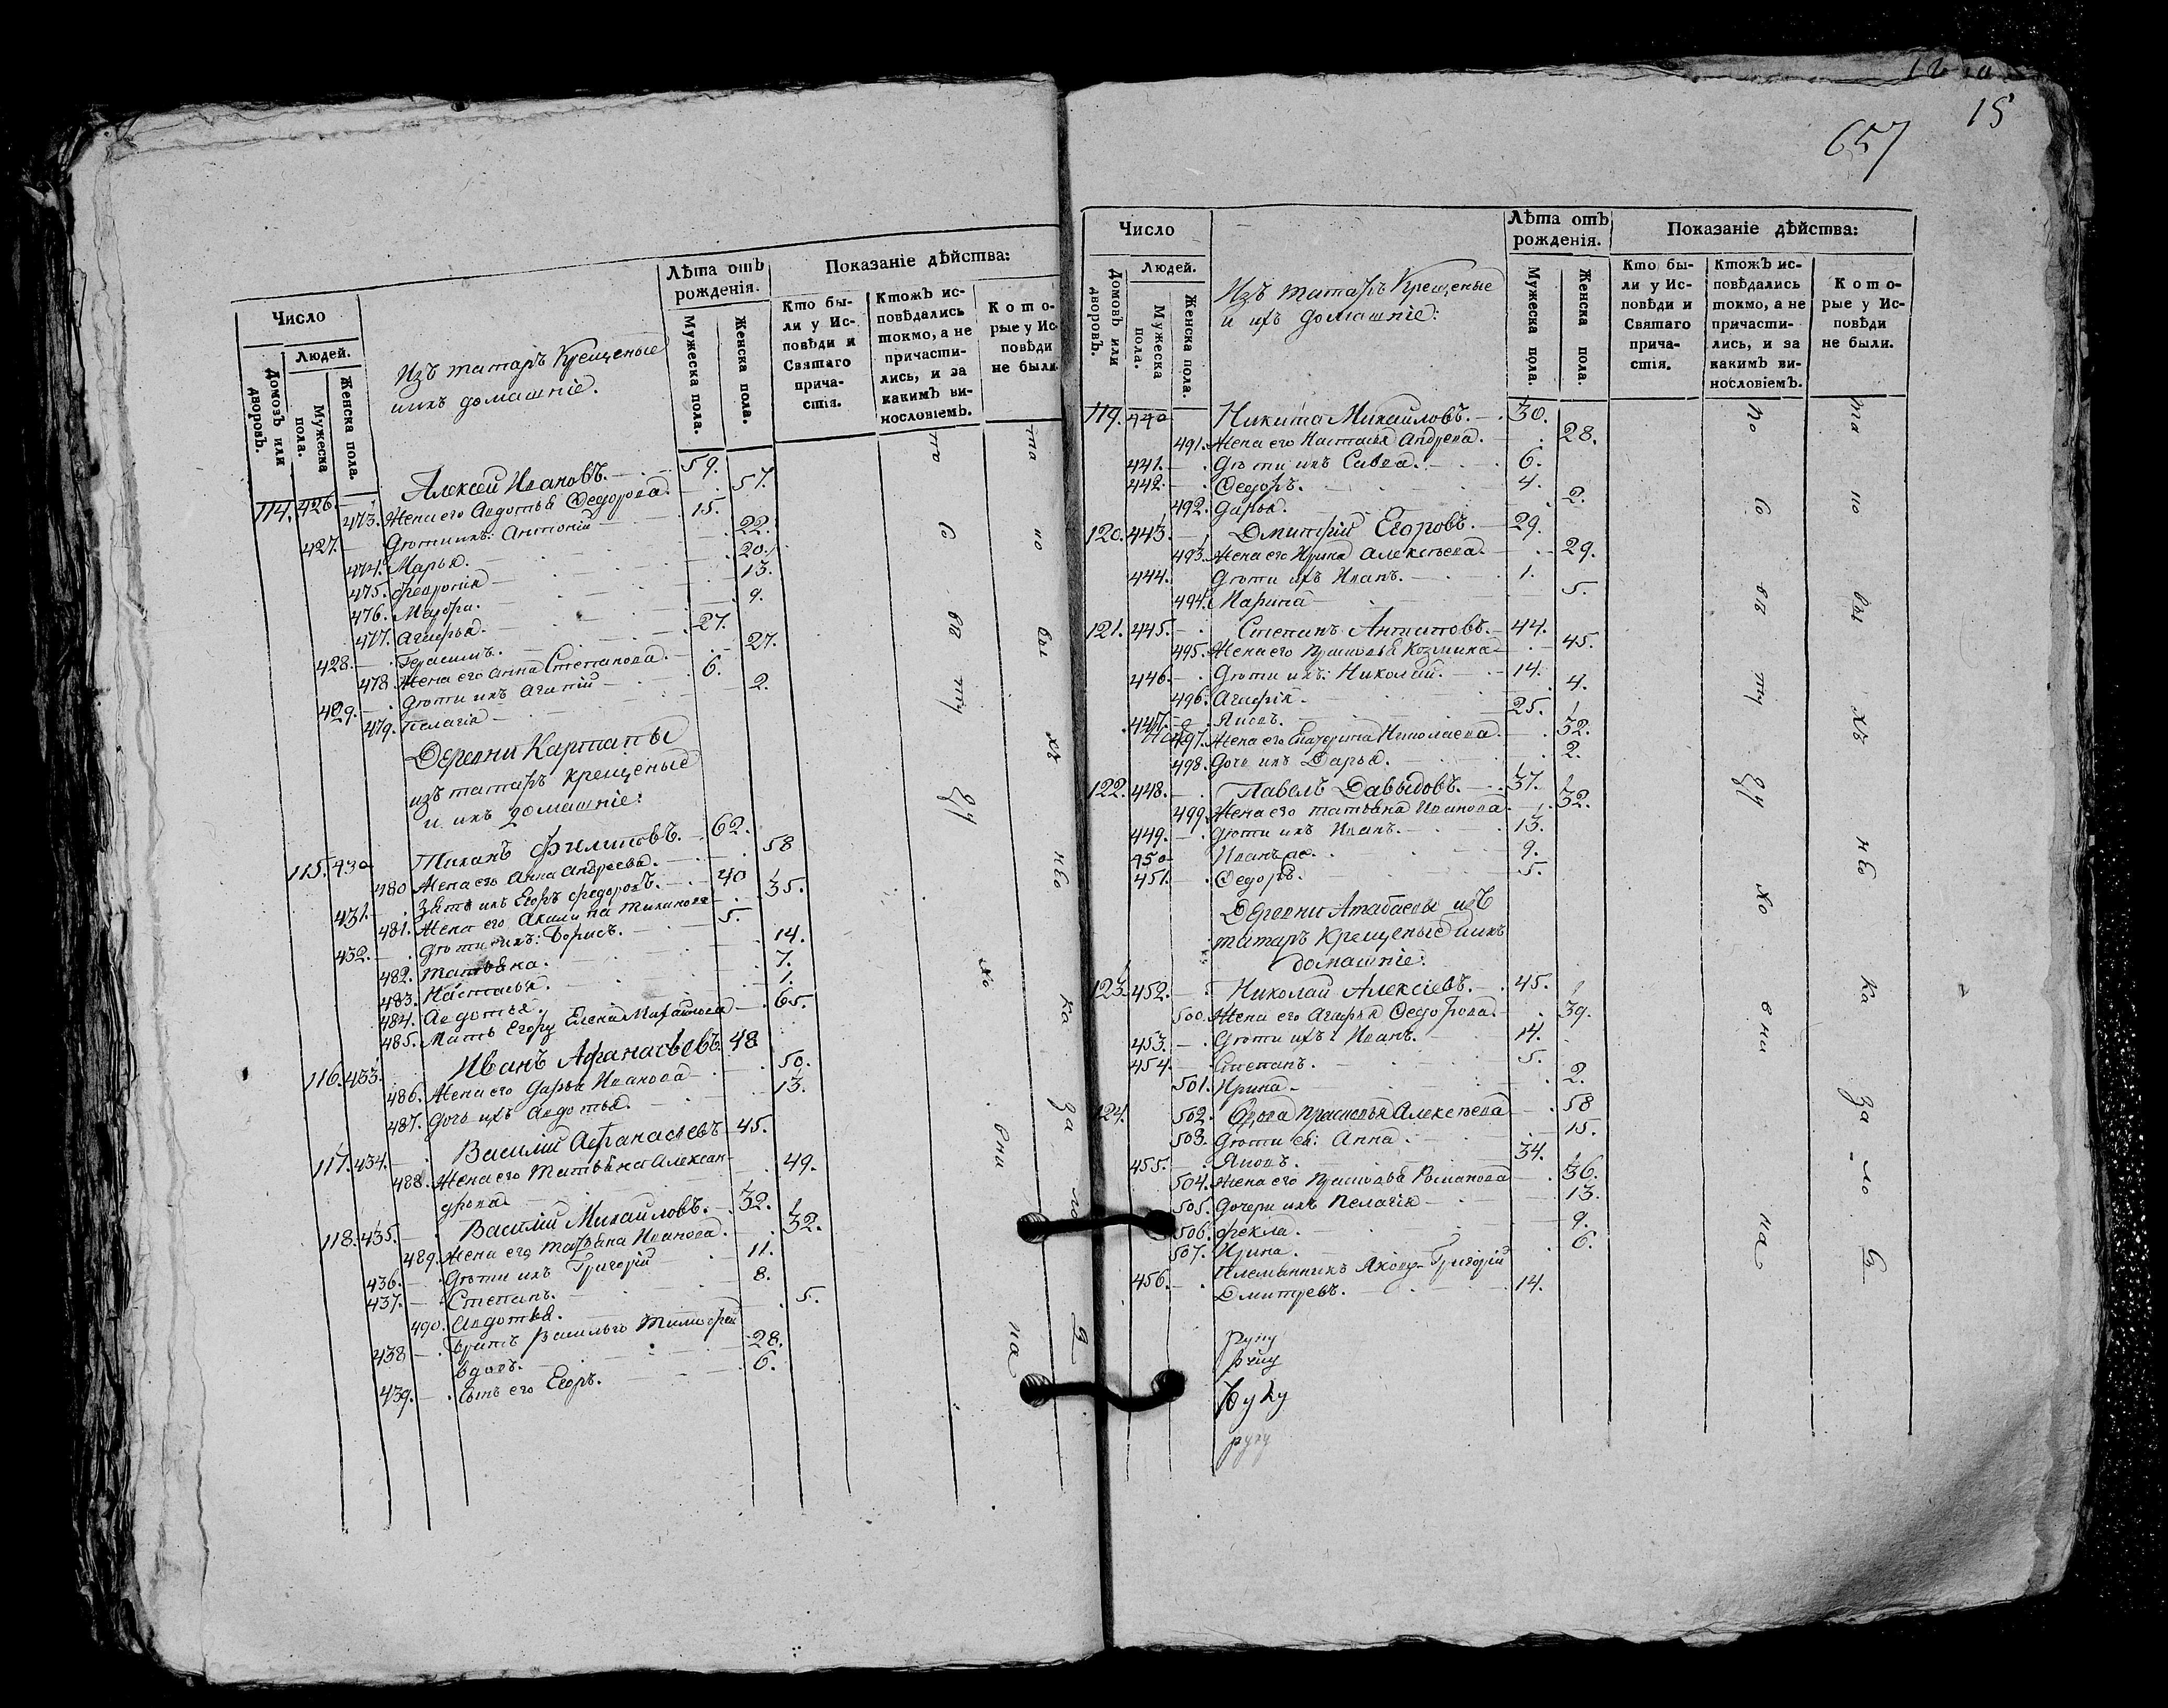 Число
Людей.
Домовъ или дворовъ.
Мужеска пола.
Женска пола.
Изъ татаръ Крещеные
ихъ домашніе.
Лѣта отъ
рожденія.
Мужеска пола.
Женска пола.
Показаніе дѣйства:
Кто бы-
ли у Ис-
повѣди и
Святаго
прича-
стія.
Ктожъ ис-
повѣдались
токмо, а не
причасти-
лись, и за
какимъ ви-
нословіемъ.
Кото-
рые у Ис-
повѣди
не были.
114. 426 Алексѣй Ивановъ. 59.
473. Жена его Авдотья Федорова. 57.
427. Дѣти ихъ: Антоній 15.
474. Марья. 22.
475. Февронія 20.
476. Мавра. 13.
477. Агафья. 9.
428. Герасимъ. 27.
478. Жена его Анна Степанова. 27.
429. Дѣти ихъ Агапій 6.
479. Пелагія 2.
Деревни
изъ татаръ крещеные
и ихъ домашніе:
115. 430 Тиханъ Филиповъ. 62.
480 Жена его Анна Андреева. 58
431. Зять ихъ Егоръ Федоровъ. 40
481. Жена его Акилина Тиханова 35.
432. Дѣти ихъ: Борисъ. 5.
482. Татьяна. 14.
483. Настасья. 7.
484. Авдотья. 1.
485. Мать Егору Елена Михайлова 65.
116. 433. Иванъ Афанасьевъ. 48
486. Жена его Дарья Иванова 50.
487. Дочь ихъ Авдотья. 13.
117. 434. Василій Афанасьевъ 45.
488. Жена его Татьяна Алексан-
дрова 49.
118. 435. Василій Михайловъ. 32.
489. Жена его Татьяна Иванова. 32.
436. Дѣти ихъ Григорій 11.
437. Степанъ. 8.
490. Авдотья. 5.
438 Братъ Василью Тимофей
вдовъ. 28.
439. Сынъ его Егоръ. 6.
657
15
Число
Людей.
Домовъ или дворовъ.
Мужеска пола.
Женска пола.
Изъ татаръ Крещеные
и ихъ домашніе:
Лѣта отъ
рожденія.
Мужеска пола.
Женска пола.
Показаніе дѣйства:
Кто бы-
ли у Ис-
повѣди и
Святаго
прича-
стія.
Ктожъ ис-
повѣдались
токмо, а не
причасти-
лись, и за
какимъ ви-
нословіемъ.
Кото-
рые у Ис-
повѣди
не были.
119. 440 Никита Михайловъ. 30.
491. Жена его Настасья Андреева. 28.
441. Дѣти ихъ Савва. 6.
442. Федоръ. 4.
492. Дарья. 2.
120. 443. Дмитрій Егоровъ. 29.
493. Жена его Ирина Алексѣева. 29.
444. Дѣти ихъ Иванъ. 1.
494. Марина 5.
121. 445. Степанъ Антиповъ. 44.
495. Жена его Прасковья Козмина 45.
446. Дѣти ихъ: Николай. 14.
496. Агафія. 4.
447. 25.
497. Жена его Екатерина Николаева. 32.
498. Дочь ихъ Дарья. 2.
122. 448. Павелъ Давыдовъ. 37.
499. Жена его Татьяна Иванова. 32.
449. Дѣти ихъ Иванъ. 13.
450 Иванъ же. 9.
451. Федоръ. 5.
Деревни Атабаевы изъ
татаръ крещеные и ихъ
домашніе:
123. 452. Николай Алексіевъ. 45.
500. Жена его Агафья Федорова. 39.
453. Дѣти ихъ: Иванъ. 14.
454. Степанъ. 5.
501. Ирина. 2.
124. 502. Вдова Прасковья Алексѣева 58
503. Дѣти ея: Анна. 15.
455. Яковъ. 34.
504. Жена его Прасковья Романова 36.
505. Дочери ихъ Пелагія 13.
506. Фекла. 9.
507. Ирина. 6.
456. Племянникъ Якову Григорій
Дмитревъ. 14.